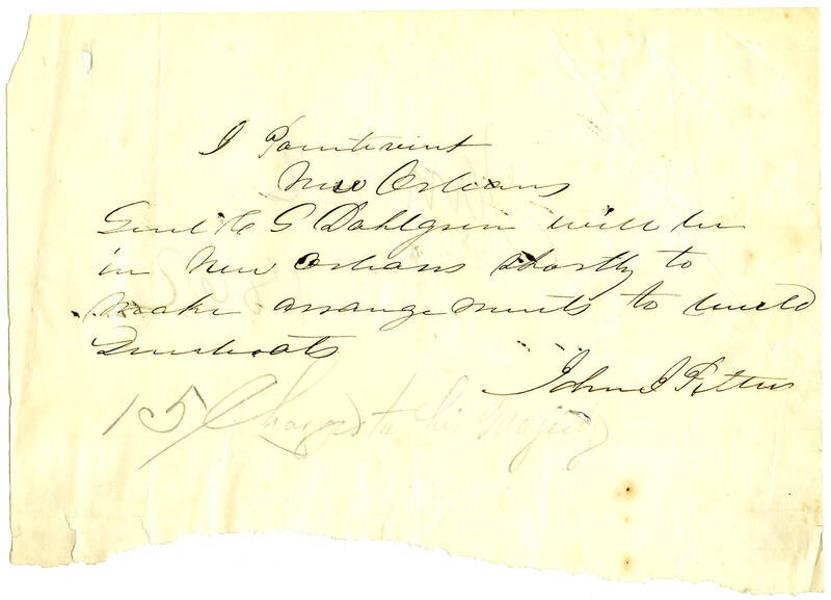 I Pointevint
New Orleans
Genl C G Dahlgren will be
in New Orleans shortly to
make arrangements to build
Gunboats
John J Pettus
15/ Charged to his Majesty